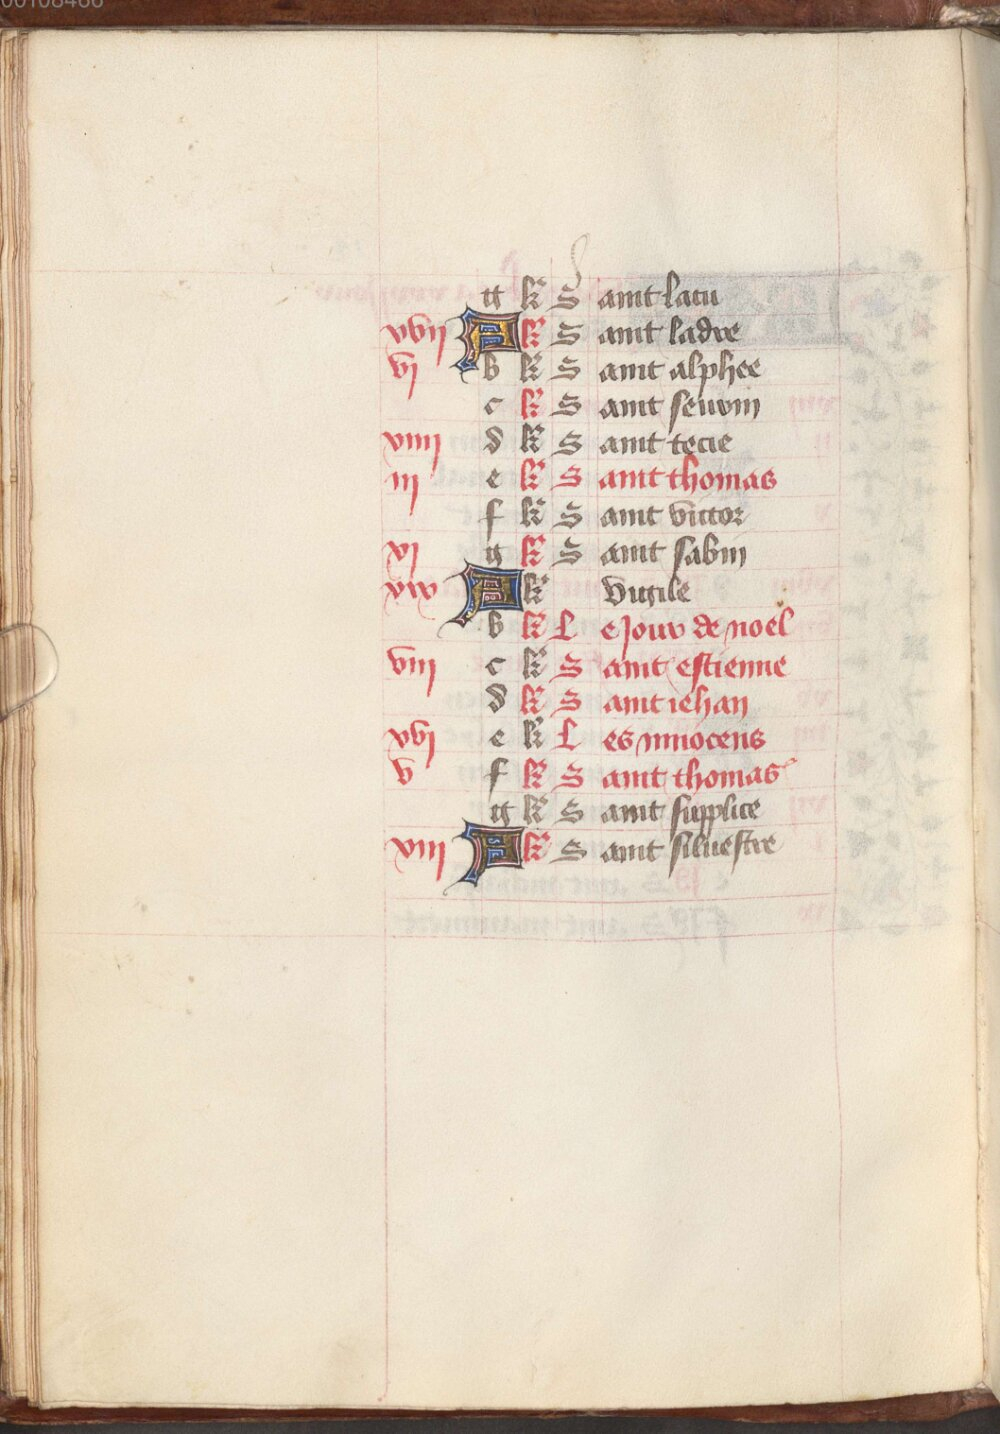 g kl S aint Latu
xvii A kl S aint ladre
vi b kl S aint alphee
c kl S aint seuvin
viiii d kl S aint tecie
iii e kl S aint thomas
f kl S aint victor
xi g kl S aint sabin
xix A kl Vigile
b kl L e Jour de noel
viii c kl S aint estienne
d kl S aint iehan
xvi e kl L es innocens
v f kl S aint thomas
g kl S aint supplice
xiii A kl S aint silvestre